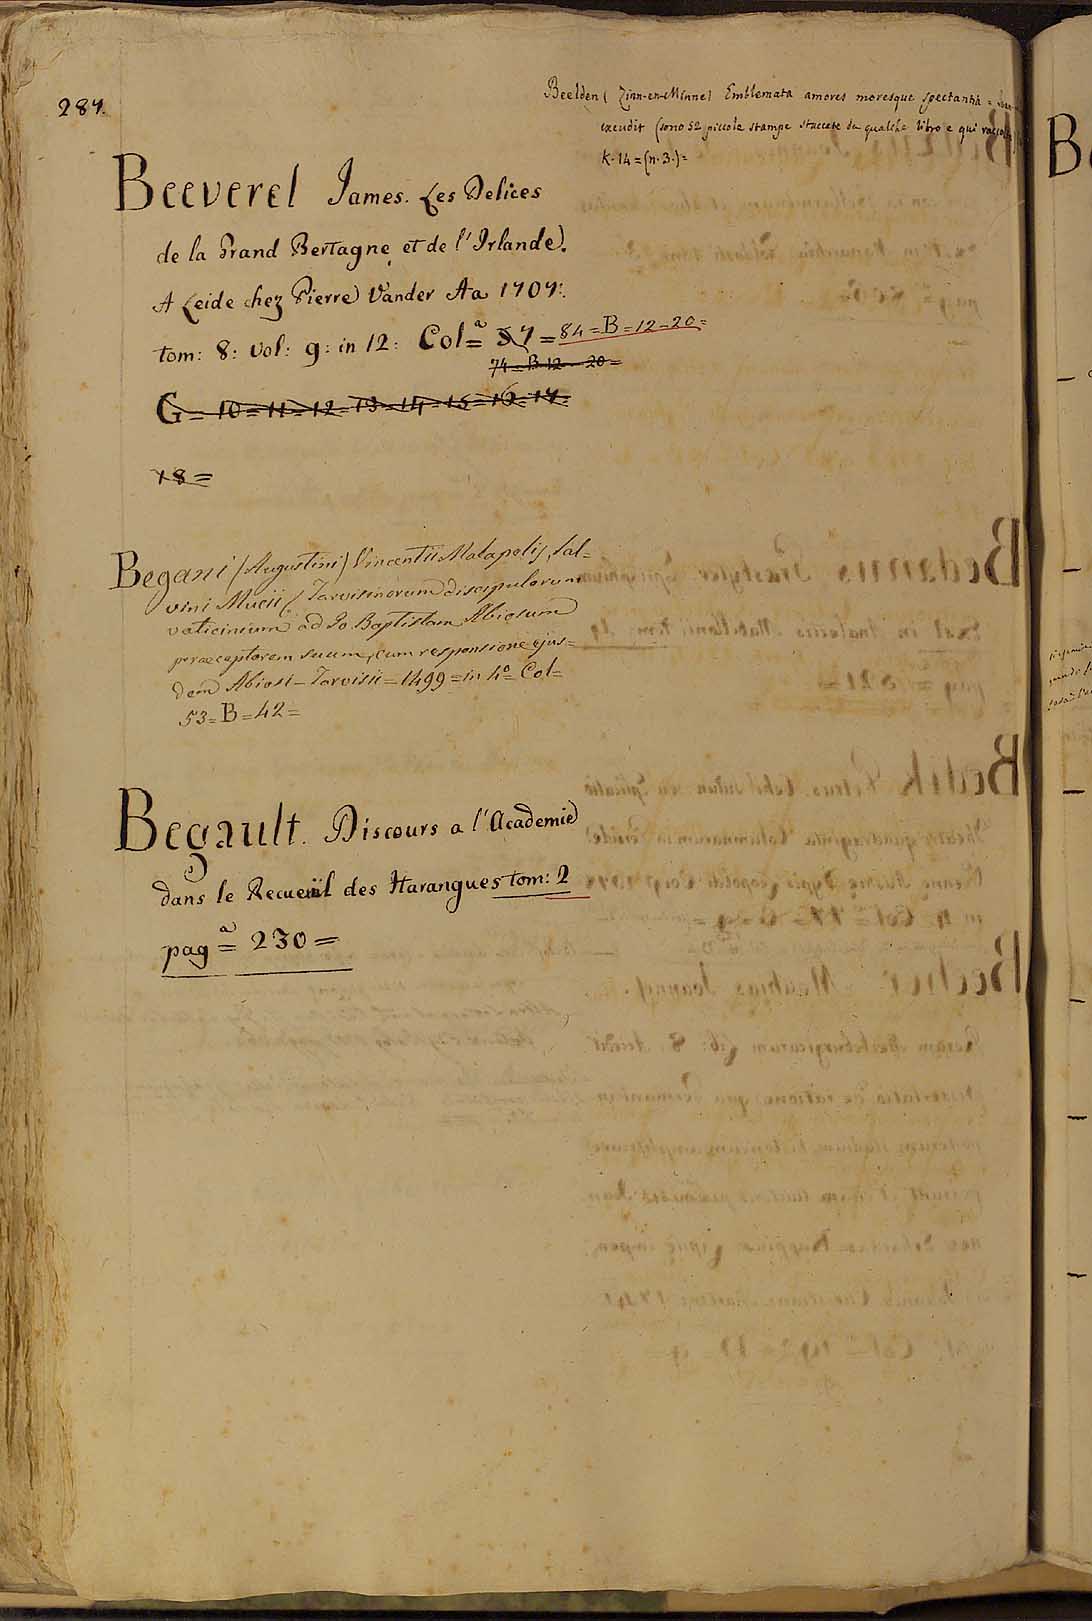 287.
Beelden (Zinn-en-Minne) Emblemata amores moresque spectantia =
excudit (sono 52 piccole stampe staccate da qualche libro e qui
K. 14 = (n. 3.) =
Beeverel James. Les Delices
de la Grand Bertagne et de l'Irlande.
A Leide chez Pierre Vander Aa 1707:
tom: 8: vol: 9: in 12: Col.a = 57 = 84 = B = 12 = 20 =
74 = B 12 = 20 =
G = 10 = 11 = 12 = 13 = 14 = 15 = 16 = 17 =
18 =
Begani (Augustini) Vincentii Matapelis, Sal=
vini Mucii, Tarvisinorum discipulorum
vaticinium ad Jo. Baptistam Abiosum
praeceptorem suum, cum responsione ejus=
dem Abiosi = Tarvisii = 1499 = in 4.o = Col =
53 = B = 42 =
Begault. Discours a l'Academie
dans le Recueïl des Harangues tom: 2
pag.a = 230 =
Be